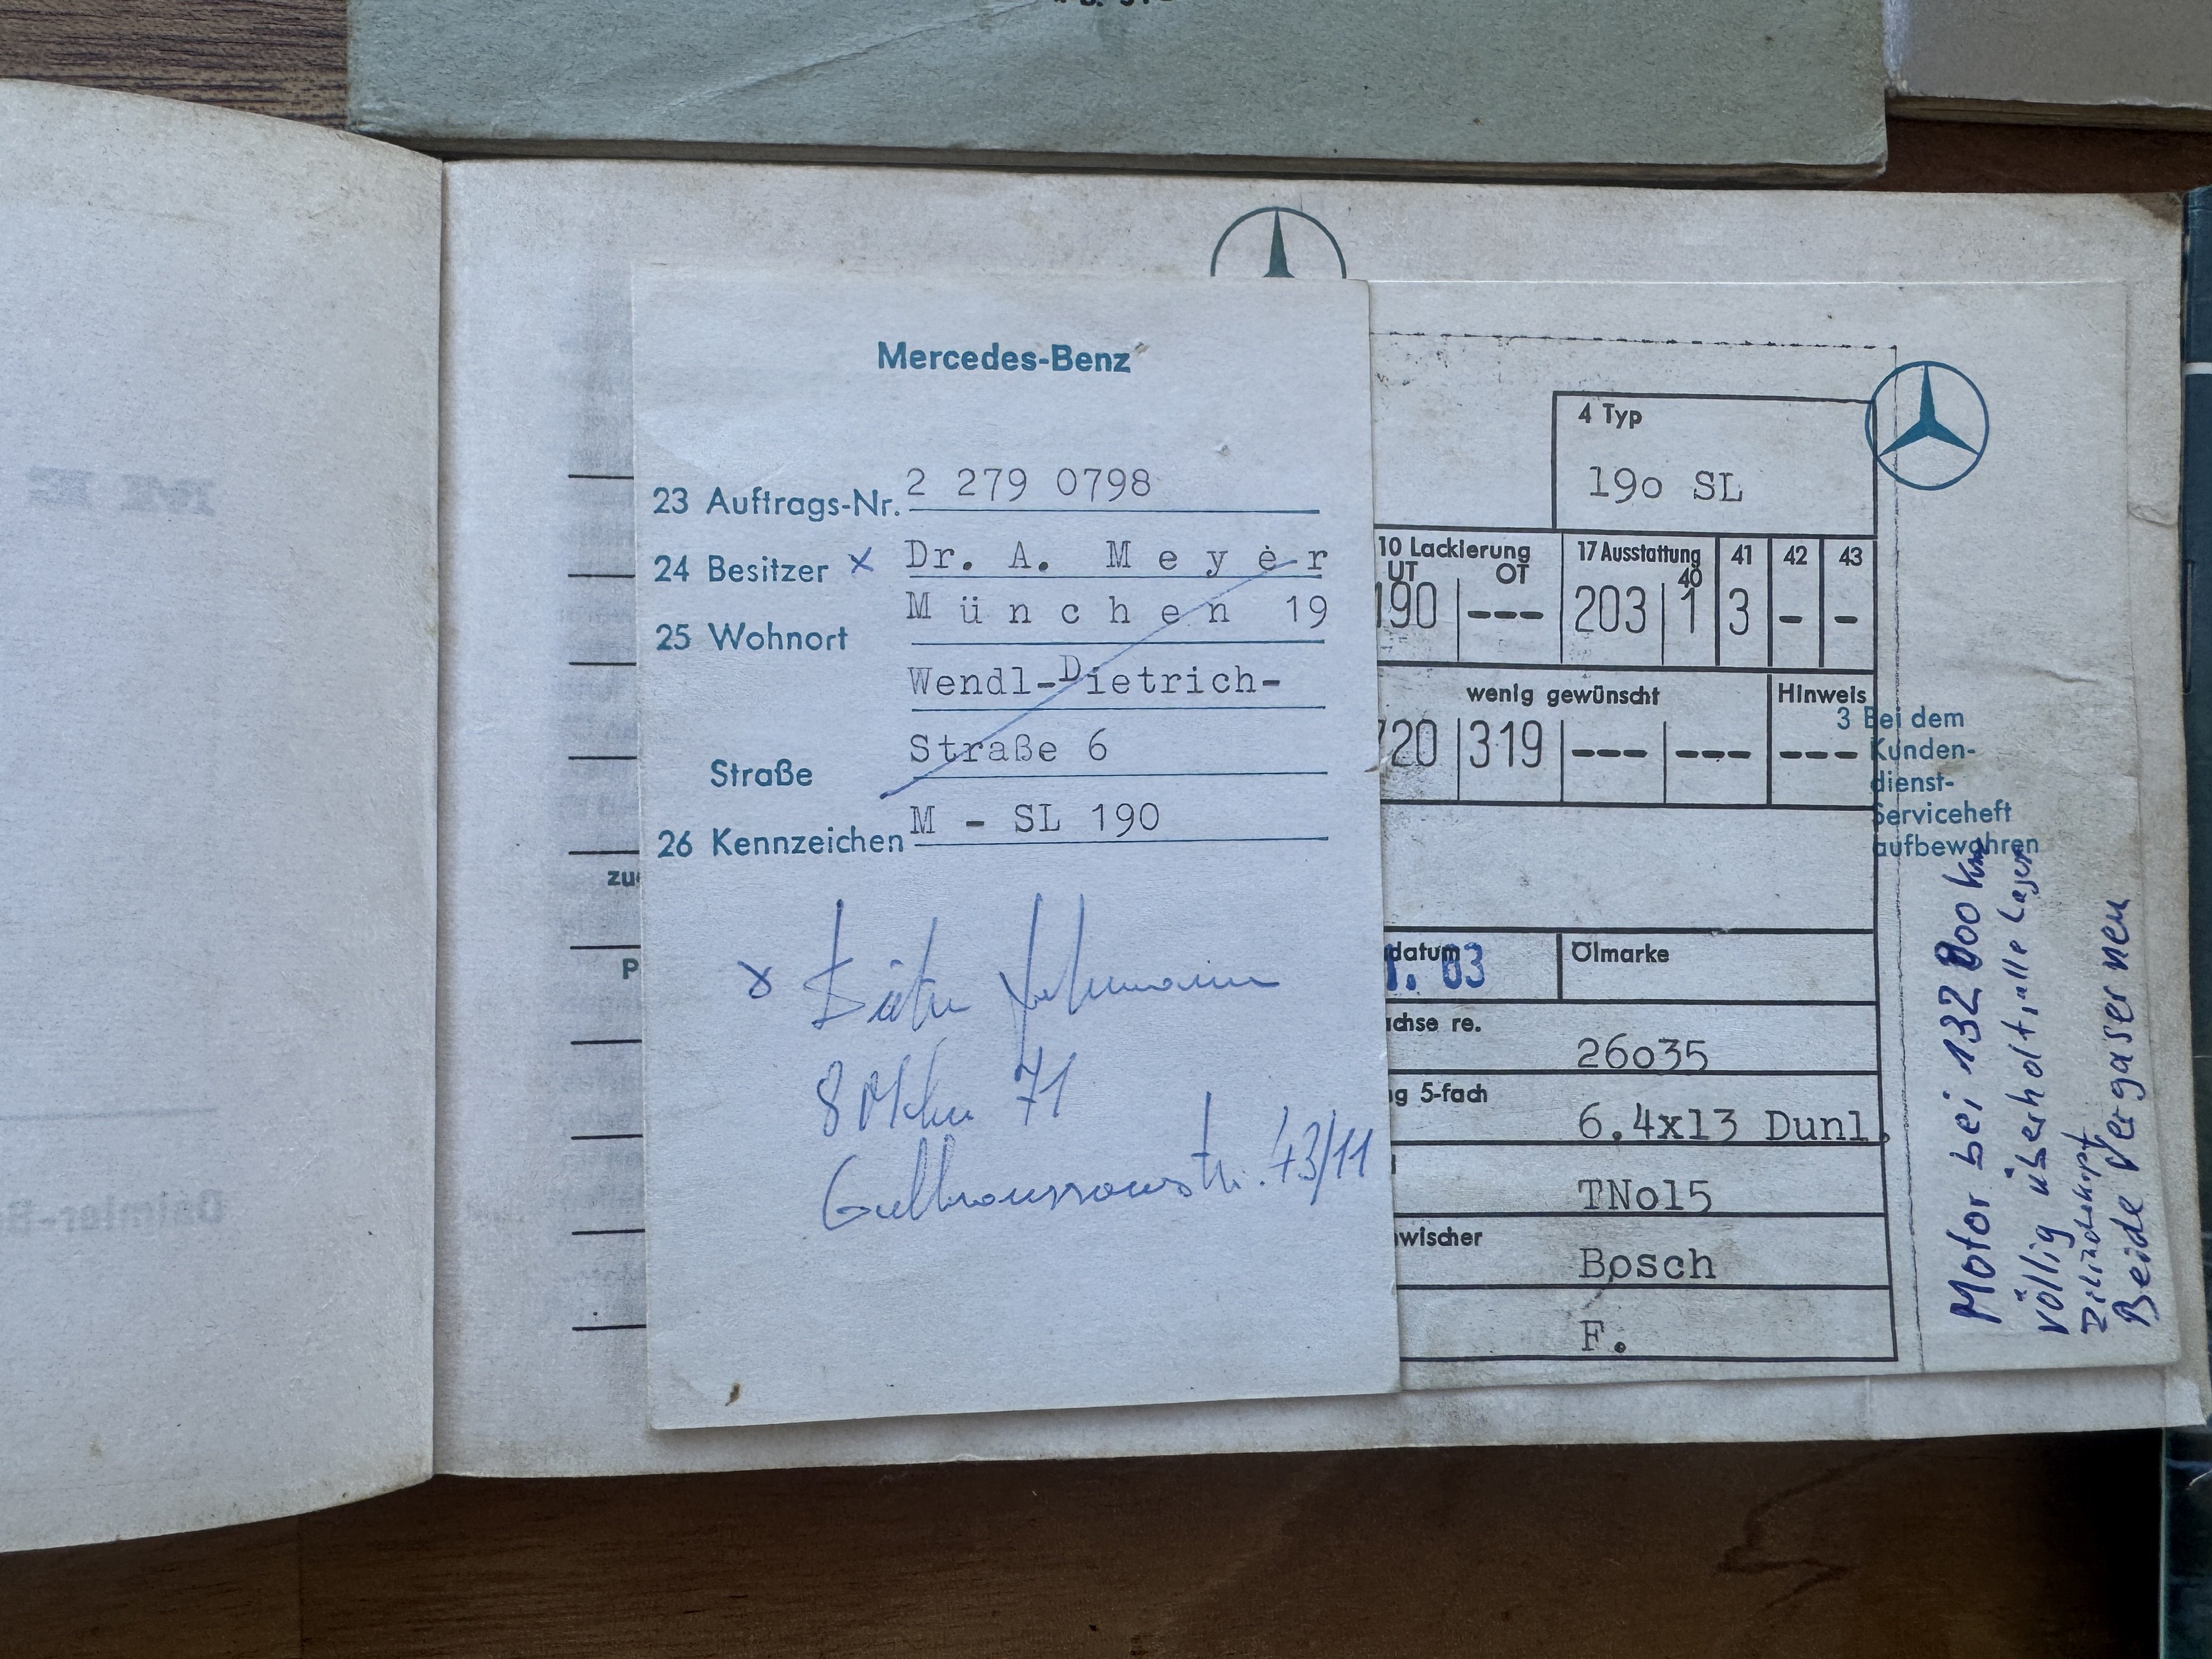 Mercedes-Benz
23 Auftrags-Nr. 2 279 0798
24 Besitzer x Dr. A. Meyer
25 Wohnort München 19
Wendl-Dietrich-
Straße Straße 6
26 Kennzeichen M - SL 190
x
8 71
43/11
zu
P
4 Typ
190 SL
10 Lackierung
UT OT
190 ---
17 Ausstattung 40 41 42 43
203 1 3 - -
wenig gewünscht Hinweis
720 319 --- --- ---
3 Bei dem
Kunden-
dienst-
Serviceheft
aufbewahren
datum
1. 63
Ölmarke
achse re. 26o35
ng 5-fach 6.4x13 Dunl.
TNo15
wischer Bosch
F.
Motor bei 132 000 km
völlig überholt, alle Lager
Zilinderkopf
Beide Vergaser neu
ME
Daimler-Be